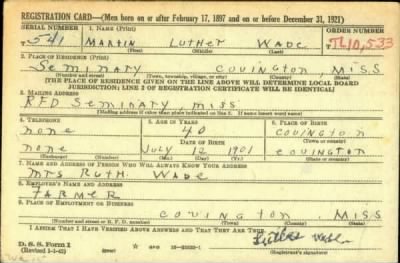 REGISTRATION CARD—(Men born on or after February 17, 1897 and on or before December 31, 1921)
SERIAL NUMBER 1. NAME (Print) ORDER NUMBER
MARTIN LUTHER WADE TL10,533
(First) (Middle) (Last)
2. PLACE OF RESIDENCE (Print)
SEMINARY COVINGTON MISS
(Number and street) (Town, township, village, or city) (County) (State)
(THE PLACE OF RESIDENCE GIVEN ON THE LINE ABOVE WILL DETERMINE LOCAL BOARD
JURISDICTION; LINE 2 OF REGISTRATION CERTIFICATE WILL BE IDENTICAL)
3. MAILING ADDRESS
RFD SEMINARY MISS
(Mailing address if other than place indicated on line 2. If same insert word same)
4. TELEPHONE 5. AGE IN YEARS 6. PLACE OF BIRTH
NONE 40 COVINGTON
DATE OF BIRTH (Town or county)
NONE JULY 12 1901 COVINGTON
(Exchange) (Number) (Mo.) (Day) (Yr.) (State or country)
7. NAME AND ADDRESS OF PERSON WHO WILL ALWAYS KNOW YOUR ADDRESS
MRS RUTH WADE
8. EMPLOYER'S NAME AND ADDRESS
FARMER
9. PLACE OF EMPLOYMENT OR BUSINESS
COVINGTON MISS
(Number and street or R. F. D. number) (Town) (County) (State)
I AFFIRM THAT I HAVE VERIFIED ABOVE ANSWERS AND THAT THEY ARE TRUE.
D. S. S. Form 1
(Revised 1-1-42)
(Registrant's signature)